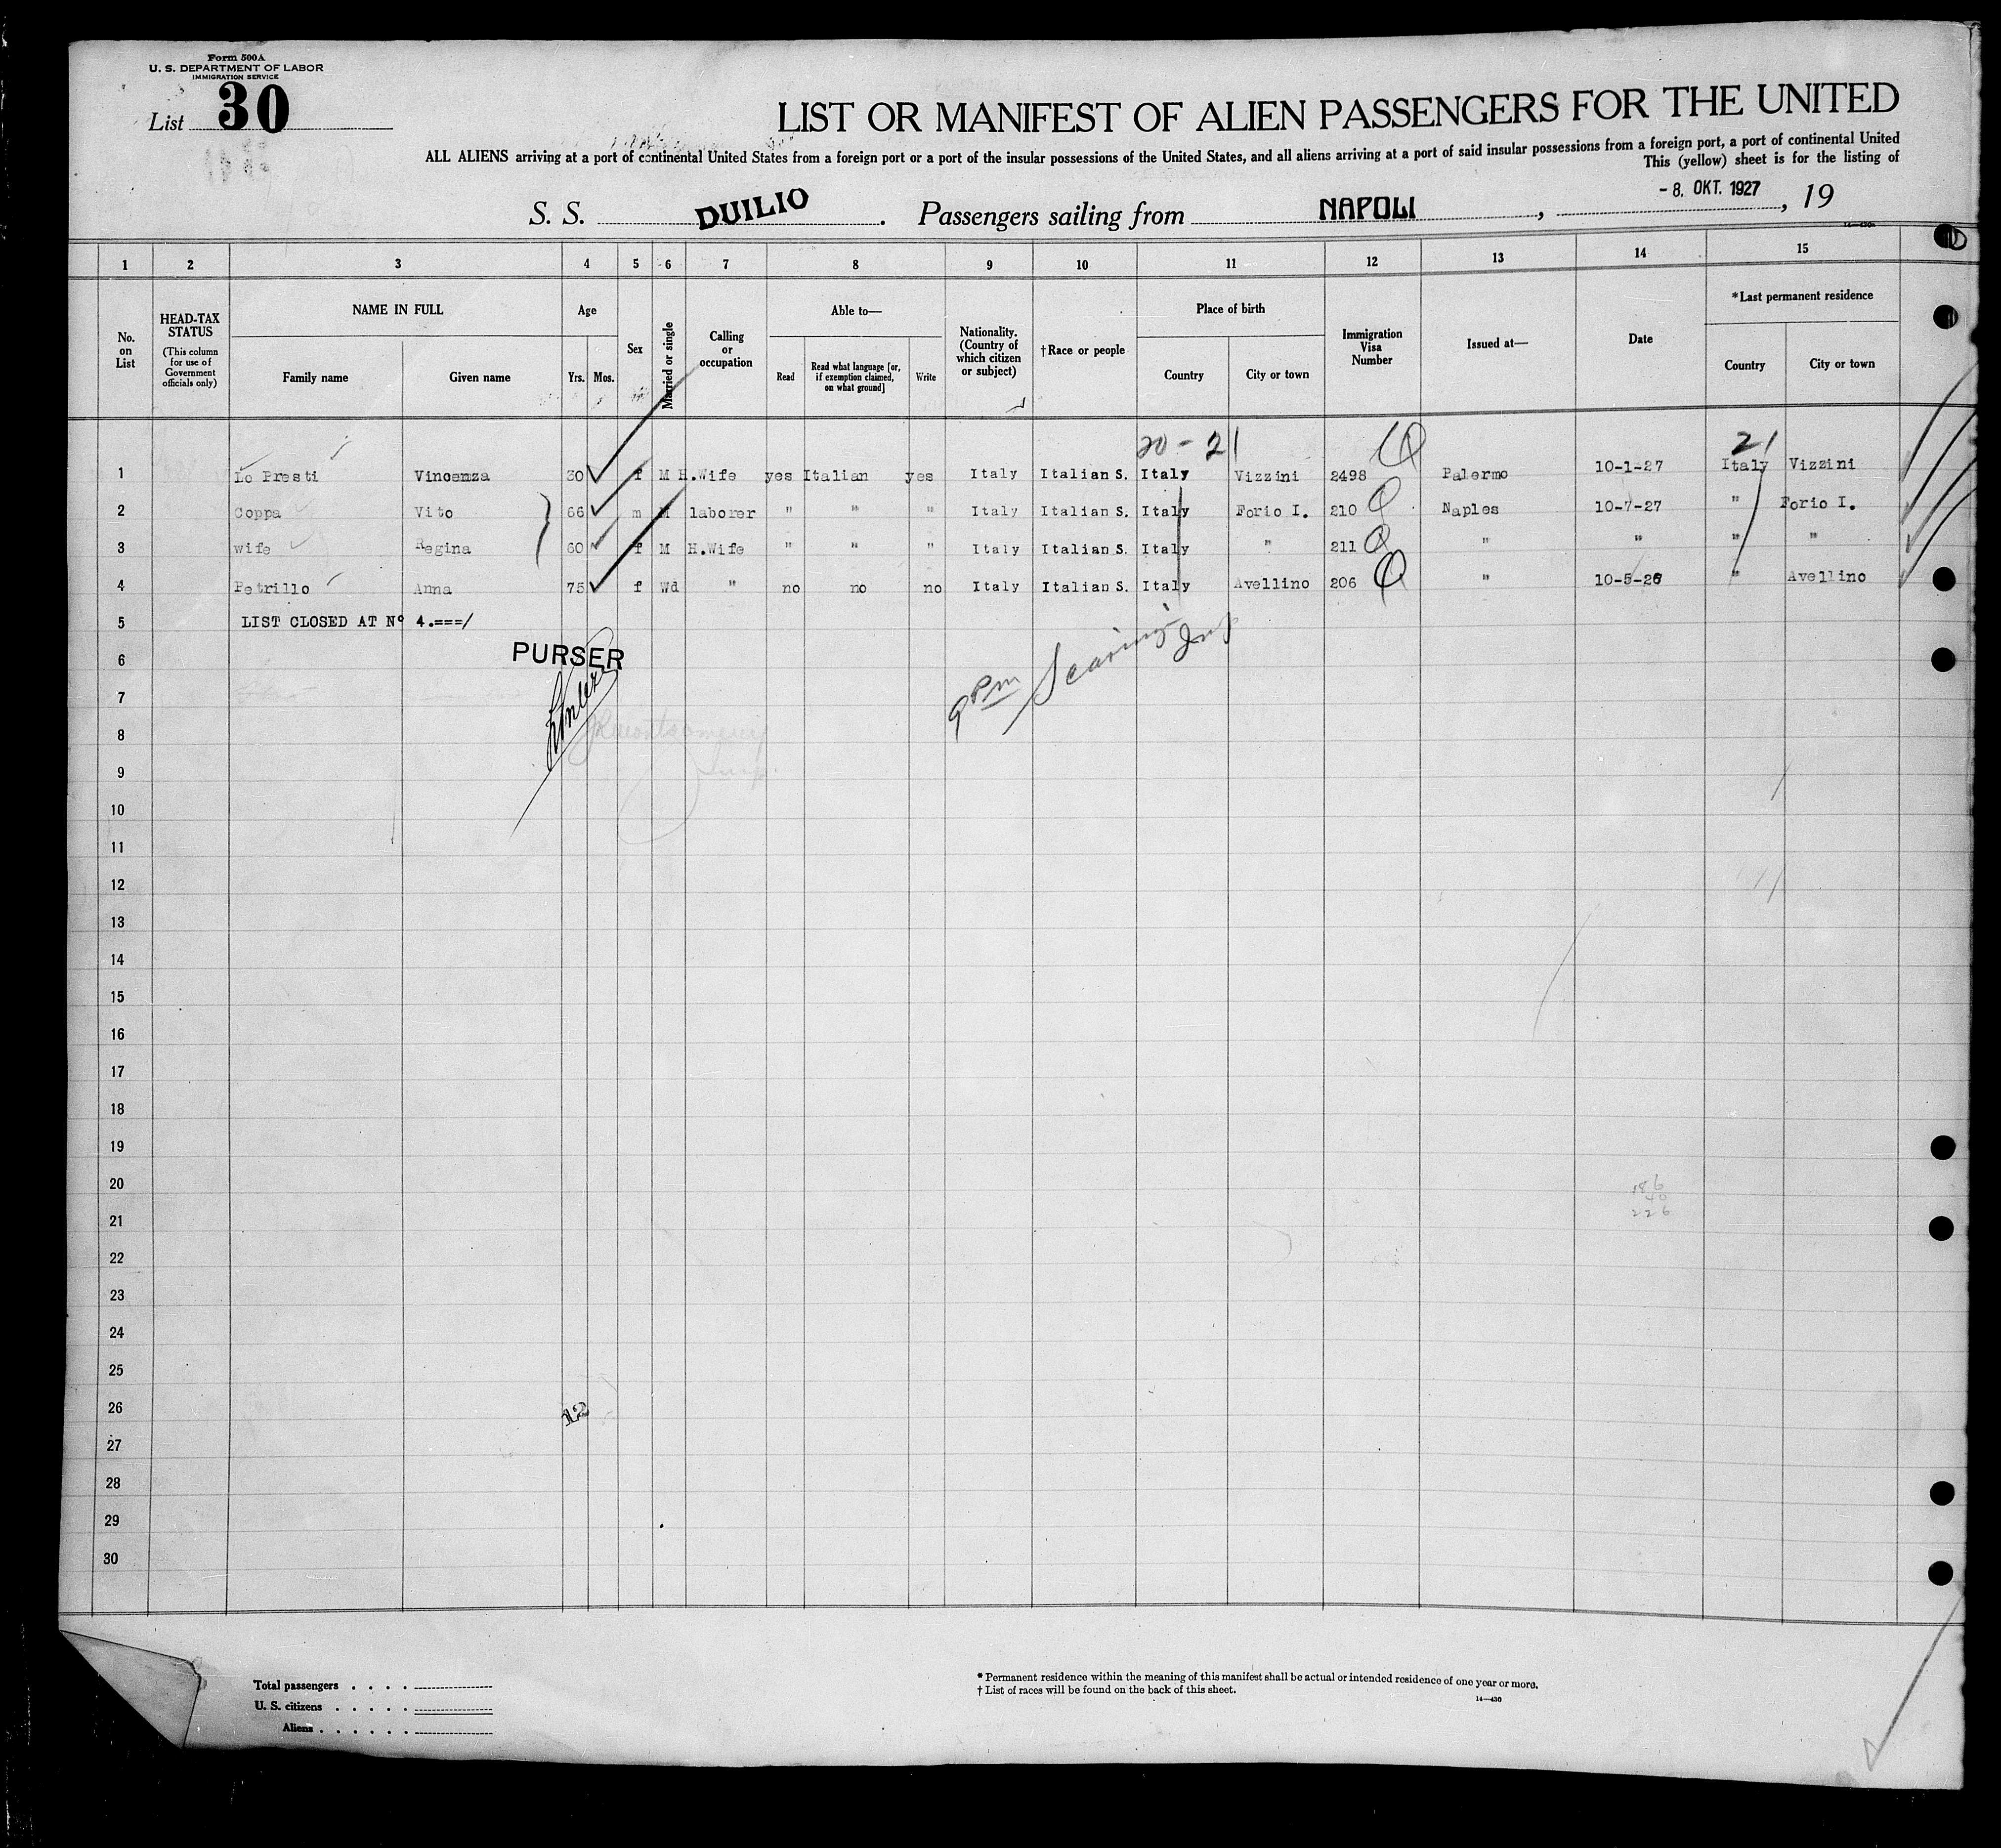 Form 500A
U. S. DEPARTMENT OF LABOR
IMMIGRATION SERVICE
List 30
LIST OR MANIFEST OF ALIEN PASSENGERS FOR THE UNITED
ALL ALIENS arriving at a port of continental United States from a foreign port or a port of the insular possessions of the United States, and all aliens arriving at a port of said insular possessions from a foreign port, a port of continental United
This (yellow) sheet is for the listing of
S. S. DUILIO. Passengers sailing from NAPOLI, - 8. OKT. 1927, 19
1 2 3 4 5 6 7 8 9 10 11 12 13 14 15
No. on List
HEAD-TAX STATUS (This column for use of Government officials only)
NAME IN FULL
Family name Given name
Age
Yrs. Mos.
Sex
Married or single
Calling or occupation
Able to—
Read Read what language [or, if exemption claimed, on what ground] Write
Nationality. (Country of which citizen or subject)
†Race or people
Place of birth
Country City or town
Immigration Visa Number
Issued at—
Date
*Last permanent residence
Country City or town
20 - 21 21
1 Lo Presti Vincenza 30 f M H.Wife yes Italian yes Italy Italian S. Italy Vizzini 2498 Palermo 10-1-27 Italy Vizzini
2 Coppa Vito 66 m M laborer " " " Italy Italian S. Italy Forio I. 210 Naples 10-7-27 " Forio I.
3 wife Regina 60 f M H.Wife " " " Italy Italian S. Italy " 211 " " " "
4 Petrillo Anna 75 f Wd " no no no Italy Italian S. Italy Avellino 206 " 10-5-26 " Avellino
5 LIST CLOSED AT Nº 4.===/
6 PURSER
7
8
9
10
11
12
13
14
15
16
17
18
19
20
21
22
23
24
25
26
27
28
29
30
9 PM
Insp
186
40
226
12
Total passengers . . . .
U. S. citizens . . . . .
Aliens . . . . . .
* Permanent residence within the meaning of this manifest shall be actual or intended residence of one year or more.
† List of races will be found on the back of this sheet.
14—430